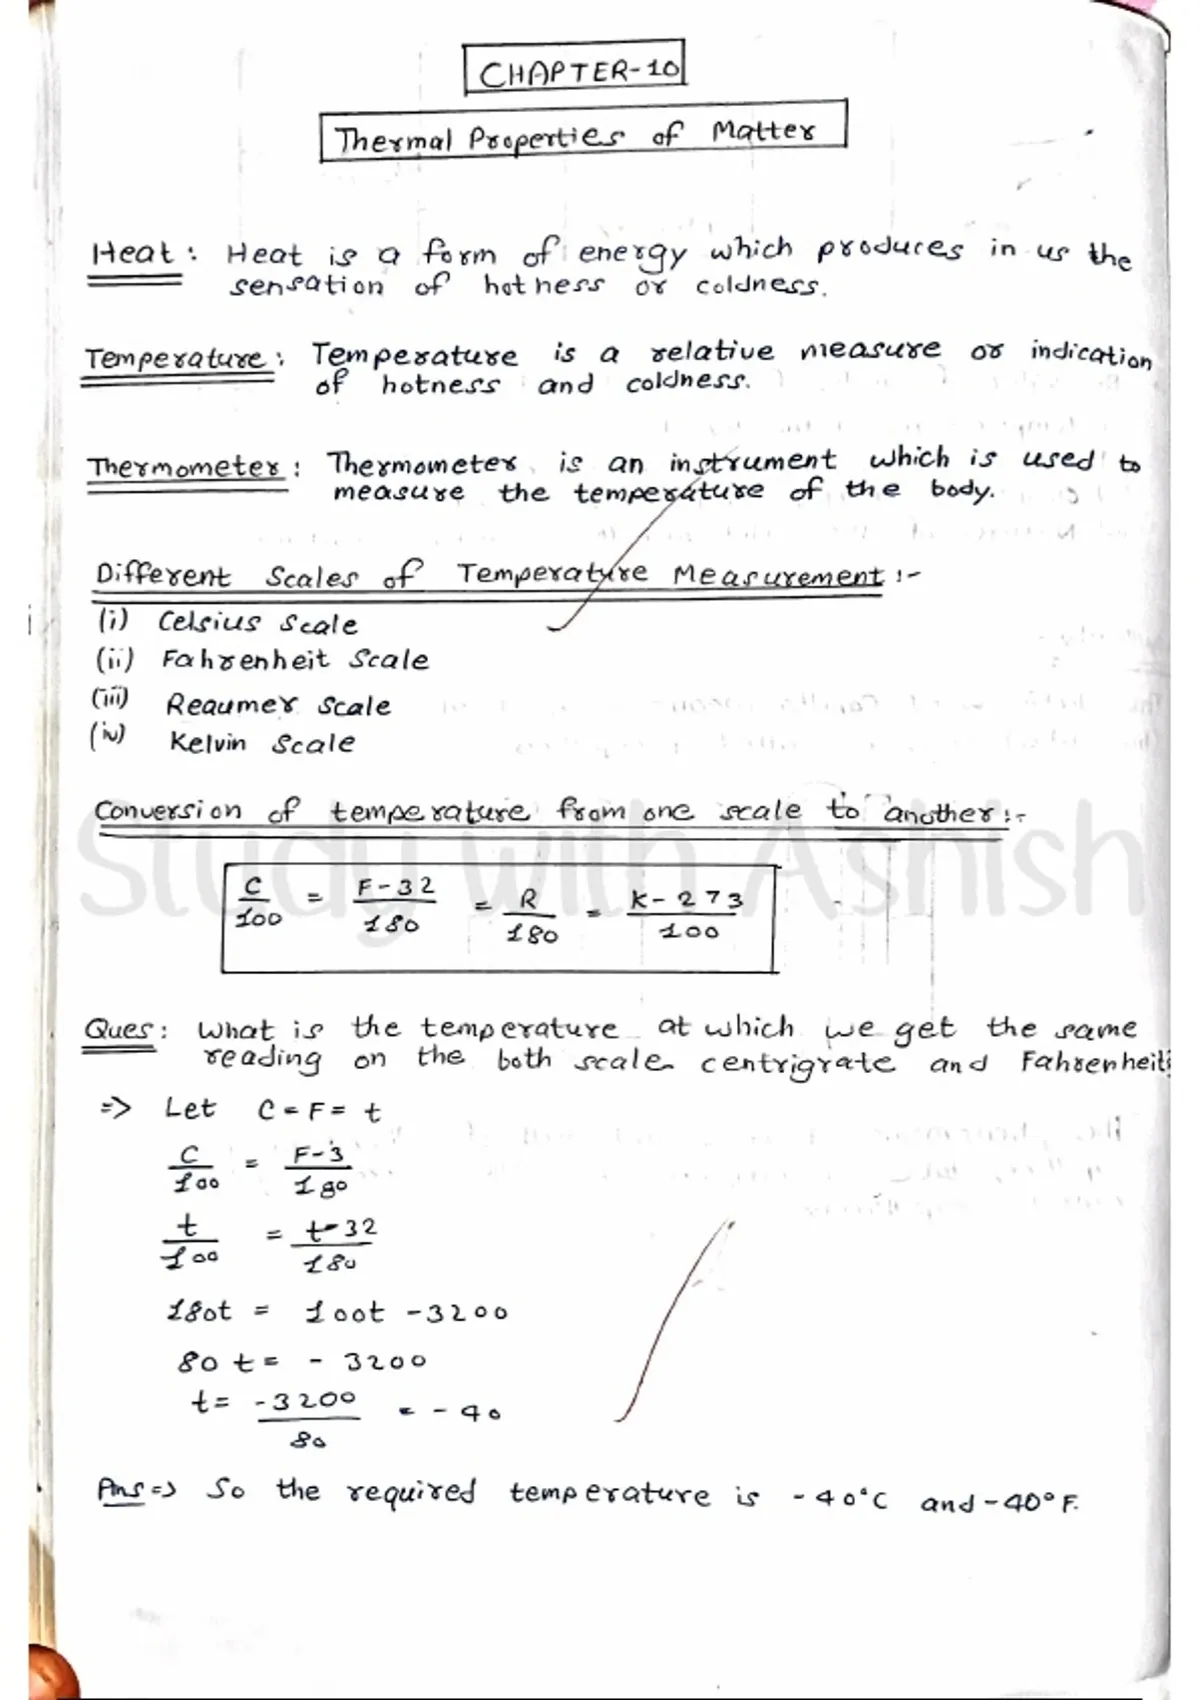 CHAPTER-10
Thermal Properties of Matter
Heat : Heat is a form of energy which produces in us the
sensation of hotness or coldness.
Temperature : Temperature is a relative measure or indication
of hotness and coldness.
Thermometer : Thermometer is an instrument which is used to
measure the temperature of the body.
Different Scales of Temperature Measurement :-
(i) Celsius Scale
(ii) Fahrenheit Scale
(iii) Reaumer Scale
(iv) Kelvin Scale
Conversion of temperature from one scale to another :-
Study with Ashish
C/100 = F-32/180 = R/180 = K-273/100
Ques : What is the temperature at which we get the same
reading on the both scale centrigrate and Fahrenheit
=> Let C = F = t
C/100 = F-3/180
t/100 = t-32/180
180t = 100t - 3200
80 t = - 3200
t = -3200/80 = - 40
Ans => So the required temperature is - 40°C and - 40°F.